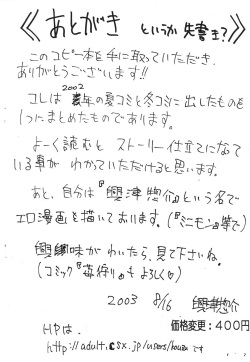 《あとがき というか 失書き?》
このコピー本を手に取っていただき
ありがとうございます!!
コレは 2002年の夏コミと冬コミに出したものを
1つにまとめたものであります。
よーく読むと ストーリー仕立てになって
いる事が わかっていただけると思います。
あと、自分は『興津惣介』という名で
エロ漫画を描いております。(『ミニモン』等で)
興味が わいたら、見て下さいね。
(コミック『苺狩り』も よろしく♡)
2003 8/16 興津惣介
価格変更:400円
HPは、
http://adult.csx.jp/users/
です